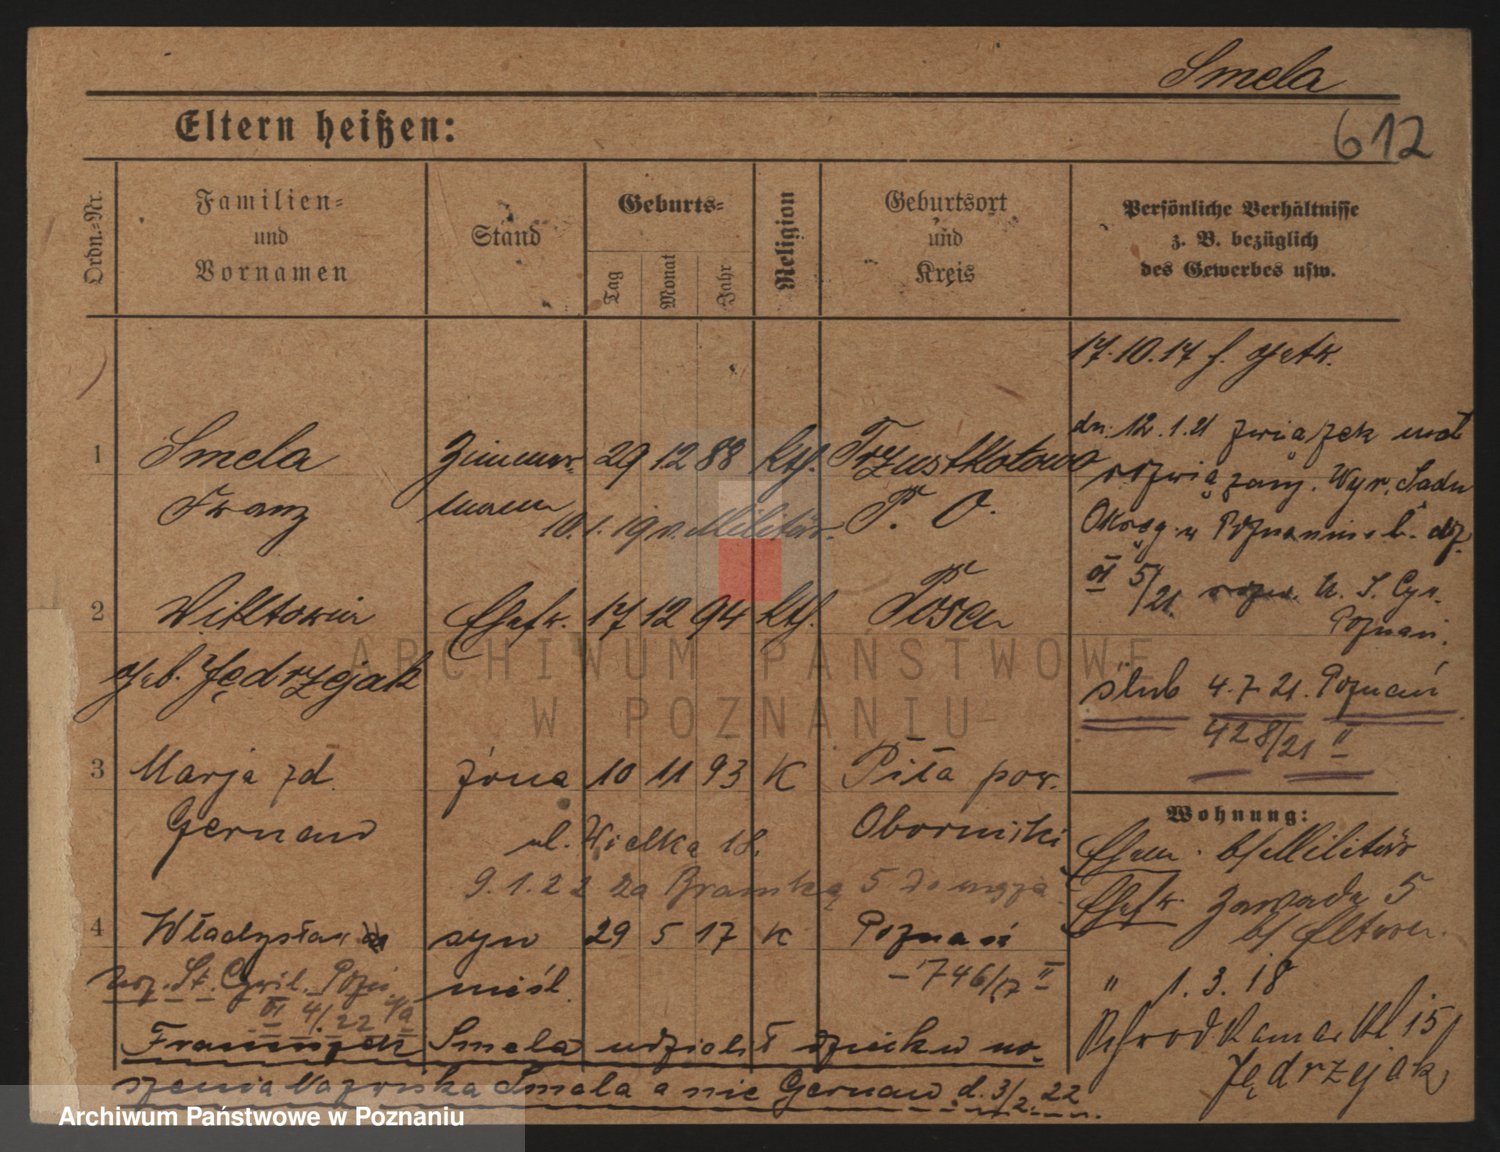 Smela
612
Eltern heißen:
Ordn.-Nr.
Familien-
und
Vornamen
Stand
Geburts-
Tag
Monat
Jahr
Religion
Geburtsort
und
Kreis
Persönliche Verhältnisse
z. B. bezüglich
des Gewerbes usw.
17.10.17
dn. 12.1.21 związek mał
rozwiązany. Wyr. Sadu
Okręg. w Poznaniu
VI 5/21 U. S. Cyw.
Poznań.
ślub 4.7.21. Poznań
428/21 II
1 Smela Zimmer- 29 12 88 kth. Trzustkotowo
Franz mann P. O.
10.1.19 v. Militär.
2 Wiktoria Ehefr. 17 12 94 kth. Posen
geb. Jędrzejak
3 Marja zd. żona 10 11 93 K Piła pow.
Gernand Obornicki
ul. Wielka 18.
9.1.22 Za Bramką 5
4 Władysław syn 29 5 17 K Poznań
nieśl. 746/17 II
Urz. St. Cywil. Pozn.
VI 4/22
Franciszek Smela udzielił dziecku no-
szenia nazwiska Smela a nie Gernand d. 3/2.22.
Wohnung:
Ehem. b/Militär
Ehefr. Zawade 5
b/ Eltern.
" 1.3.18
15/
Jędrzejak
ARCHIWUM PAŃSTWOWE
W POZNANIU
Archiwum Państwowe w Poznaniu